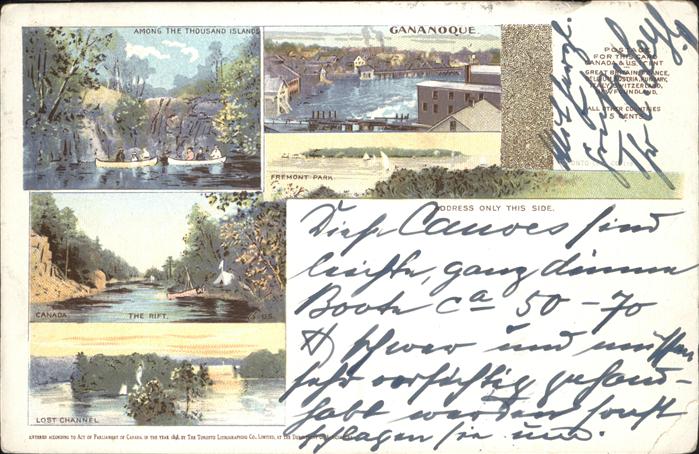 AMONG THE THOUSAND ISLANDS
GANANOQUE.
POSTAGE
FOR THIS CARD
CANADA & U.S. 1 CENT
GREAT BRITAIN, FRANCE,
BELGIUM, AUSTRIA, HUNGARY,
ITALY, SWITZERLAND,
NEWFOUNDLAND,
ALL OTHER COUNTRIES
FREMONT PARK
ADDRESS ONLY THIS SIDE.
CANADA THE RIFT. U.S.
LOST CHANNEL
ENTERED ACCORDING TO ACT OF PARLIAMENT OF CANADA IN THE YEAR 1898, BY THE TORONTO LITHOGRAPHING CO., LIMITED, AT THE
Diese Canoes sind
leichte, ganz dünne
Boote ca 50 - 70
schwer und müssen
sehr vorsichtig gehand-
habt werden sonst
schlagen sie um.